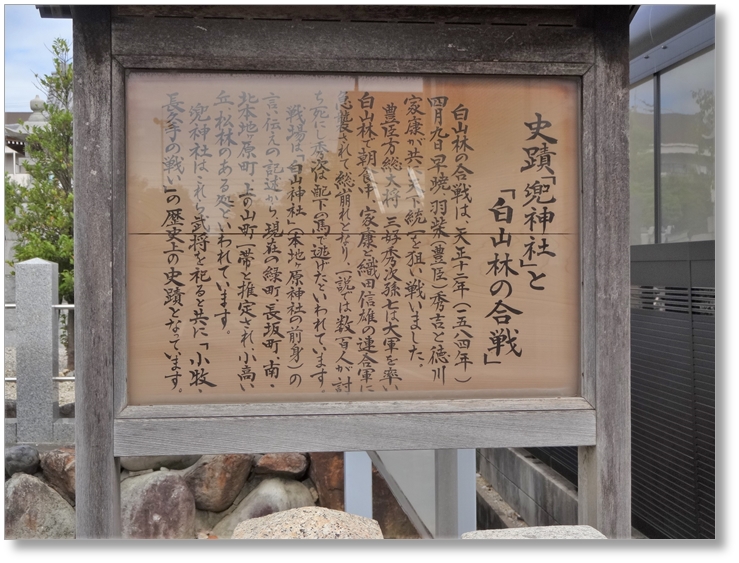 史蹟「兜神社」と
「白山林の合戦」
白山林の合戦は、天正十二年（一五八四年）
四月九日早暁、羽柴（豊臣）秀吉と徳川
家康が共に天下統一を狙い戦いました。
豊臣方総大将三好秀次孫七は大軍を率い
白山林で朝食中、家康と織田信雄の連合軍に
急襲されて総崩れとなり、一説では数百人が討
ち死にし秀次は配下の馬で逃げたといわれています。
戦場は「白山神社」（本地ヶ原神社の前身）の
言い伝えの記述から、現在の緑町、長坂町南・
北本地原町、上の山町一帯と推定され、小高い
丘、松林のある処といわれています。
兜神社はこれら武将を祀ると共に「小牧・
長久手の戦い」の歴史上の史蹟となっています。